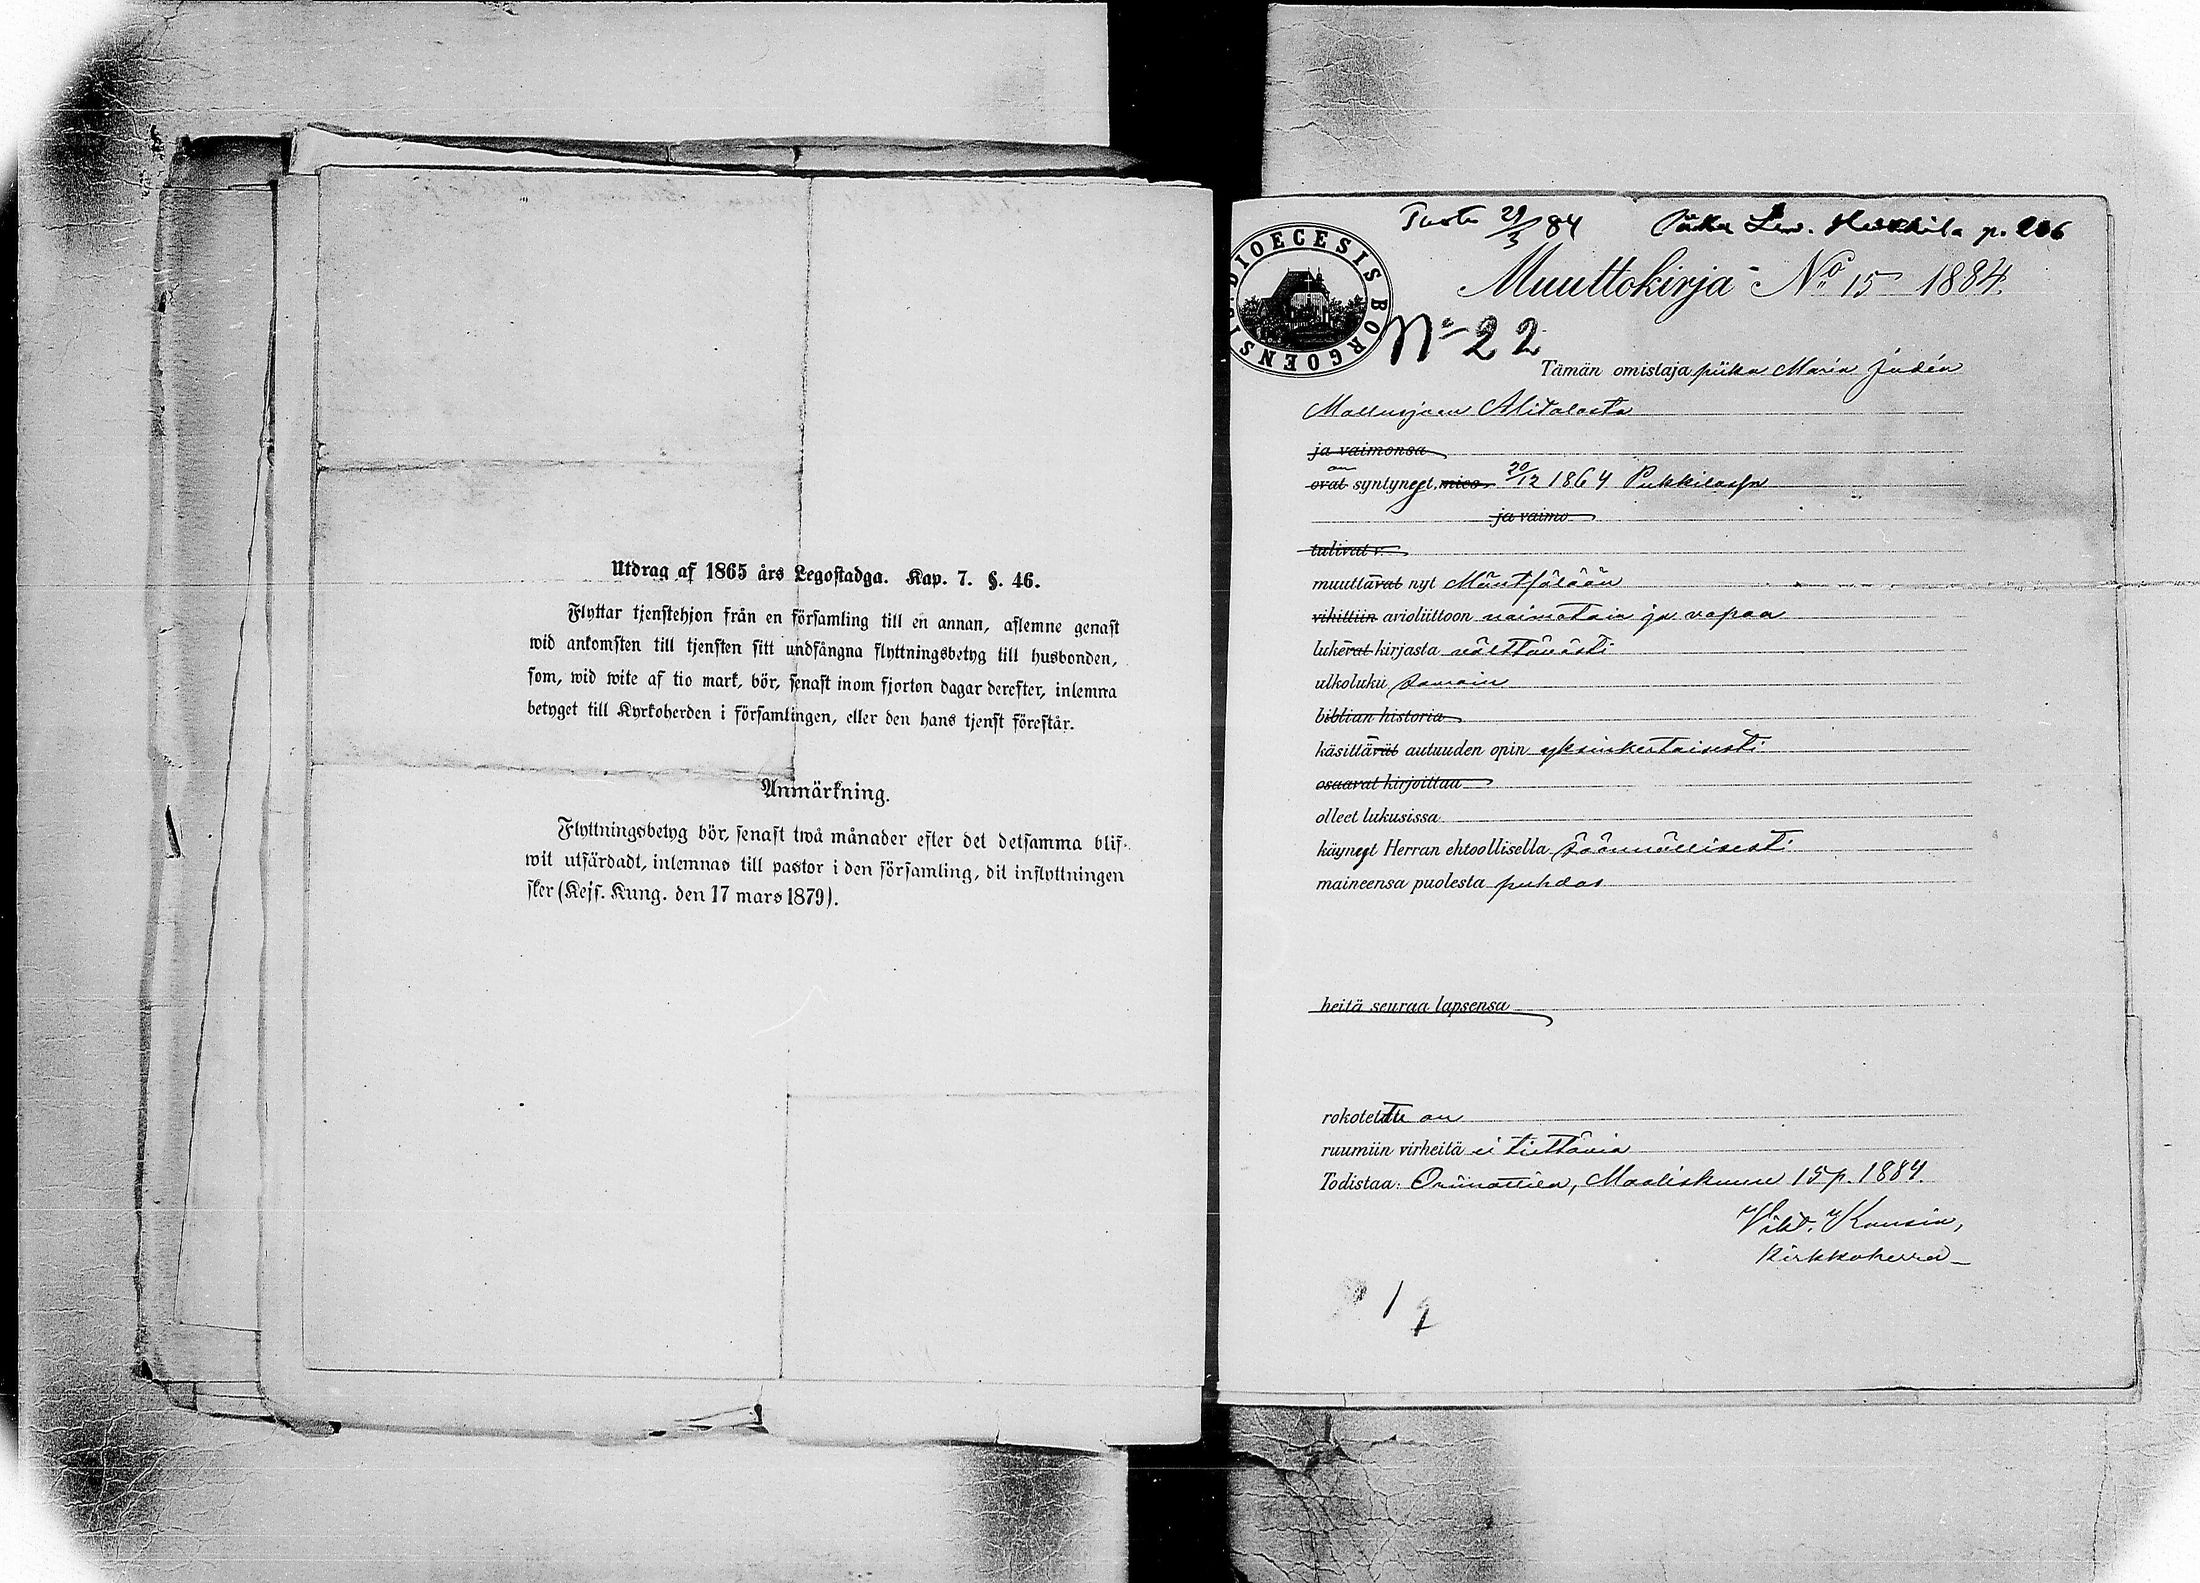 Utdrag af 1865 års Legostadga. Kap. 7. §. 46.
Flyttar tjenstehjon från en församling till en annan, aflemne genast
wid ankomsten till tjensten sitt undfångna flyttningsbetyg till husbonden,
som, wid wite af tio mark, bör, senast inom fjorton dagar derefter, inlemna
betyget till Kyrkoherden i församlingen, eller den hans tjenst förestår.
Anmärkning.
Flyttningsbetyg bör, senast twå månader efter det detsamma blif-
wit utfärdadt, inlemnas till pastor i den församling, dit inflyttningen
sker (Kejs. Kung. den 17 mars 1879).
29/3 84 Piika p. 206
DIOECESIS BORGOENSIS
Muuttokirja No 15 1884.
No 22
Tämän omistaja piika Maria Judén
Mallusjoen Alitalosta
ja vaimonsa
on
ovat syntyneet, mies 20/12 1864 Pukkilassa
ja vaimo
tulivat v.
muuttavat nyt Mäntsälään
vihittiin avioliittoon naimatoin ja vapaa
lukevat kirjasta välttävästi
ulkoluku samoin
biblian historia
käsittävät autuuden opin yksinkertaisesti
osaavat kirjoittaa
olleet lukusissa
käyneet Herran ehtoollisella säännöllisesti
maineensa puolesta puhdas
heitä seuraa lapsensa
rokotettu on
ruumiin virheitä ei tiettävia
Todistaa: Orimattila, Maaliskuun 15 p. 1884.
Vikt.
Kirkkoherra